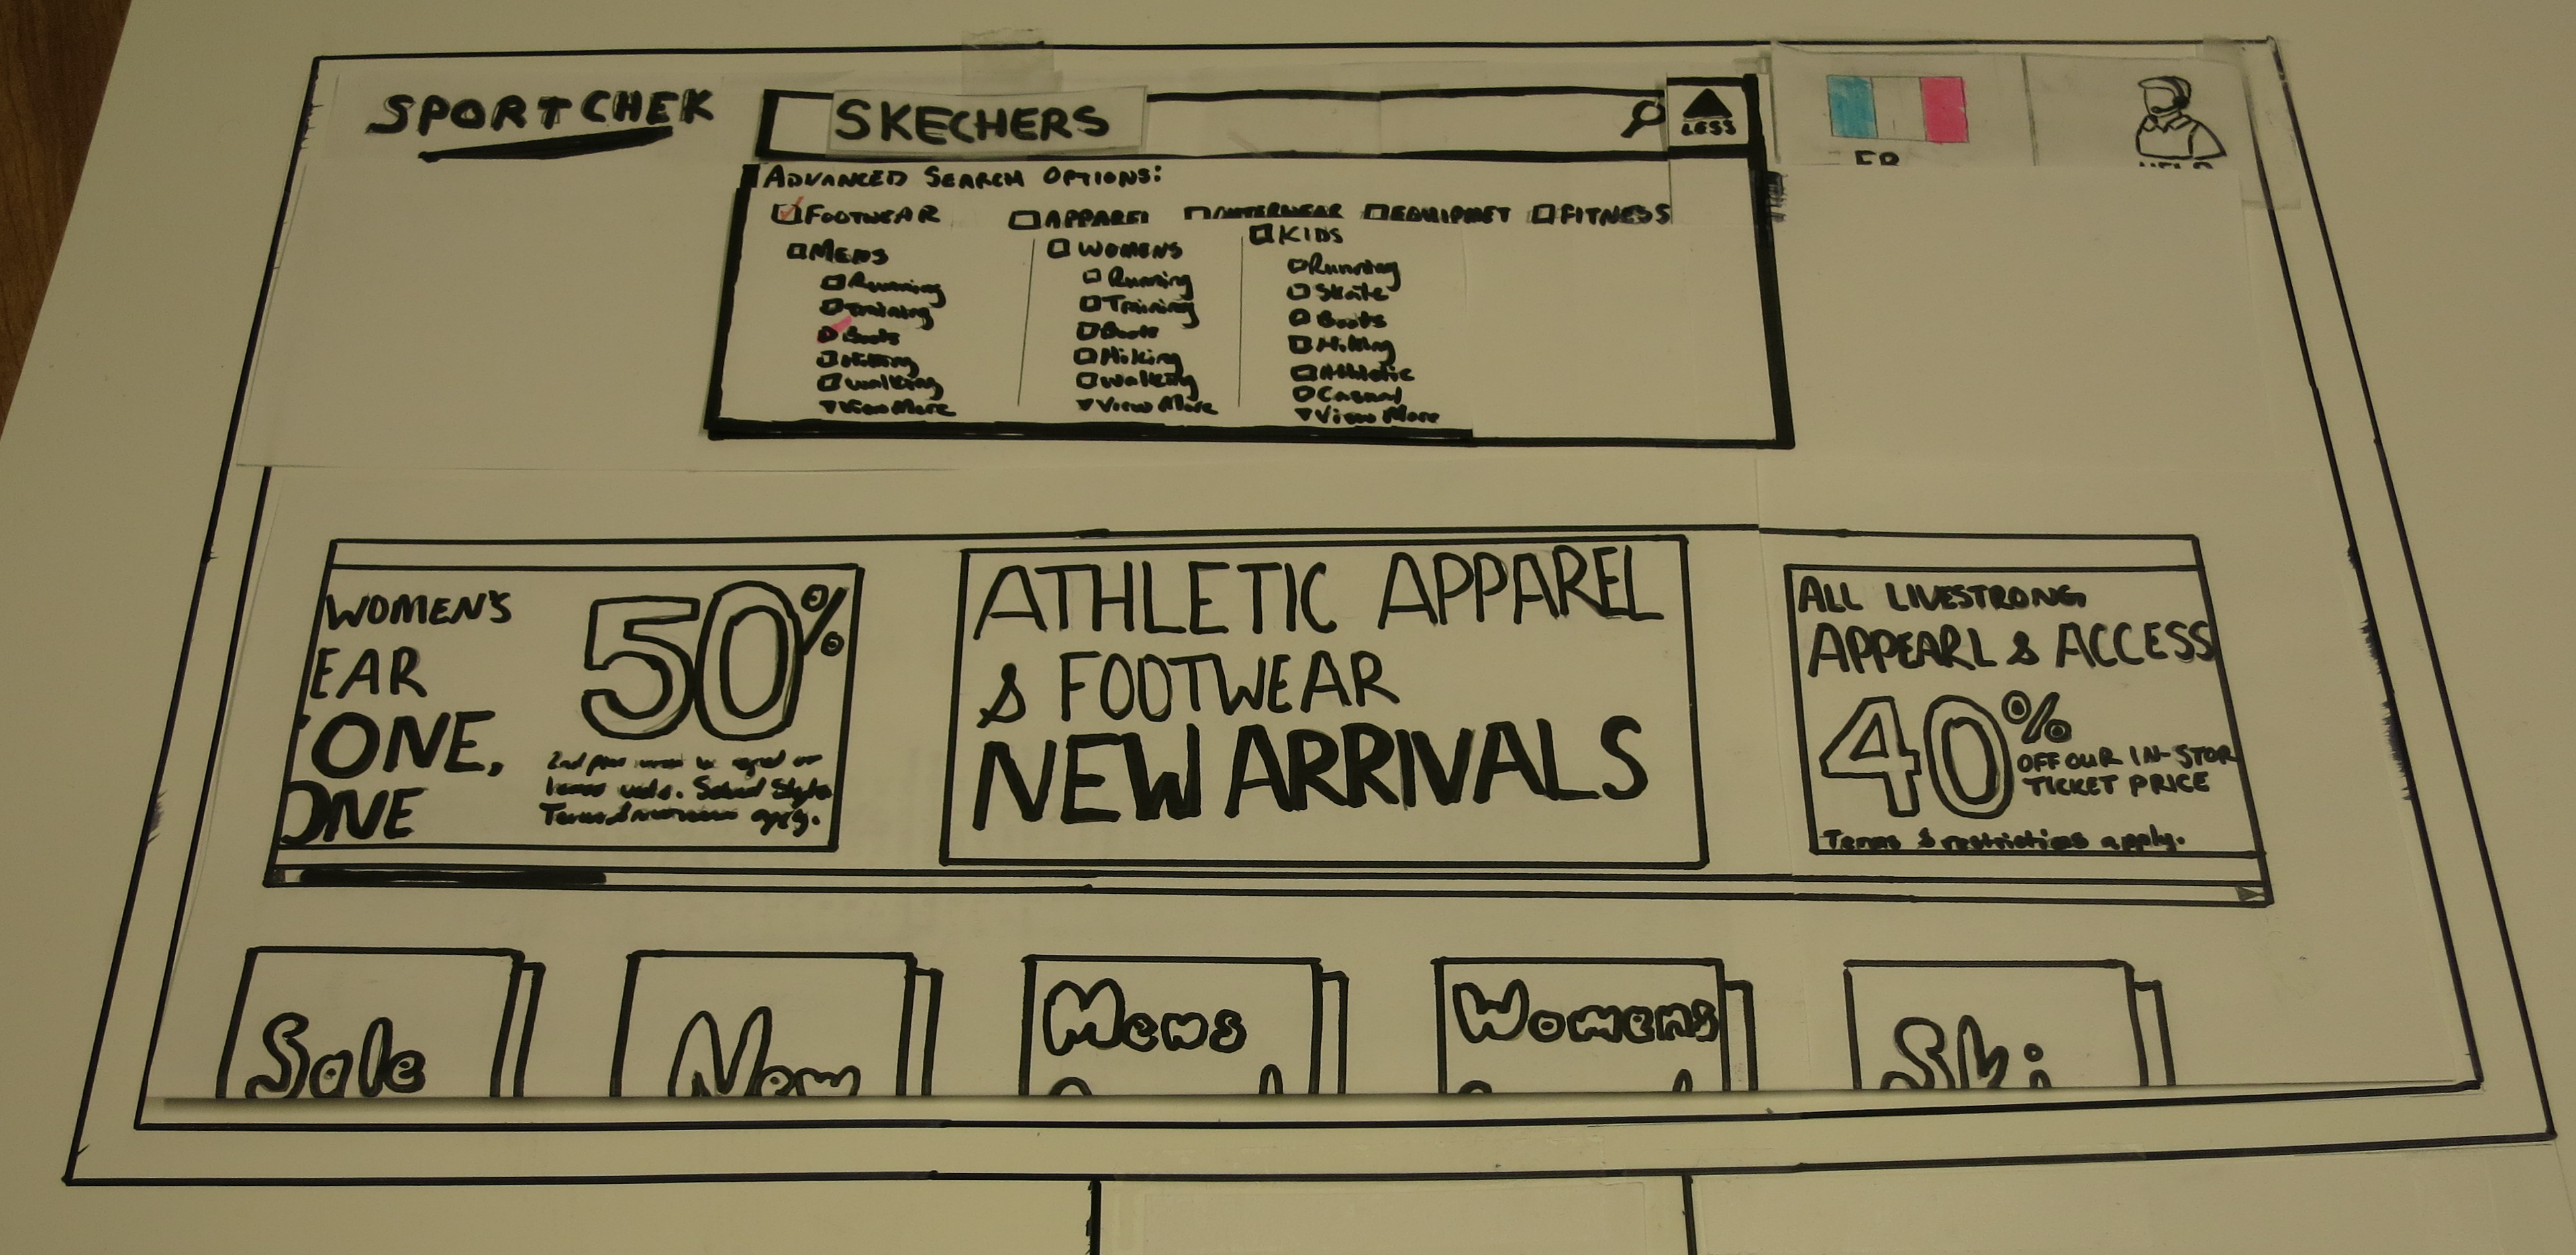 SPORTCHEK
SKECHERS
LESS
FR
HELP
ADVANCED SEARCH OPTIONS:
FOOTWEAR APPAREL OUTERWEAR EQUIPMET FITNESS
MENS
Running
Training
Boots
Hiking
Walking
View More
WOMENS
Running
Training
Boots
Hiking
Walking
View More
KIDS
Running
Skate
Boots
Hiking
Athletic
Casual
View More
WOMEN'S
EAR
ONE,
ONE
50%
2nd
Terms apply.
ATHLETIC APPAREL
& FOOTWEAR
NEW ARRIVALS
ALL LIVESTRONG
APPEARL & ACCESS
40%
OFF OUR IN-STOR
TICKET PRICE
Terms & restrictions apply.
Sale
New
Mens
Womens
Ski